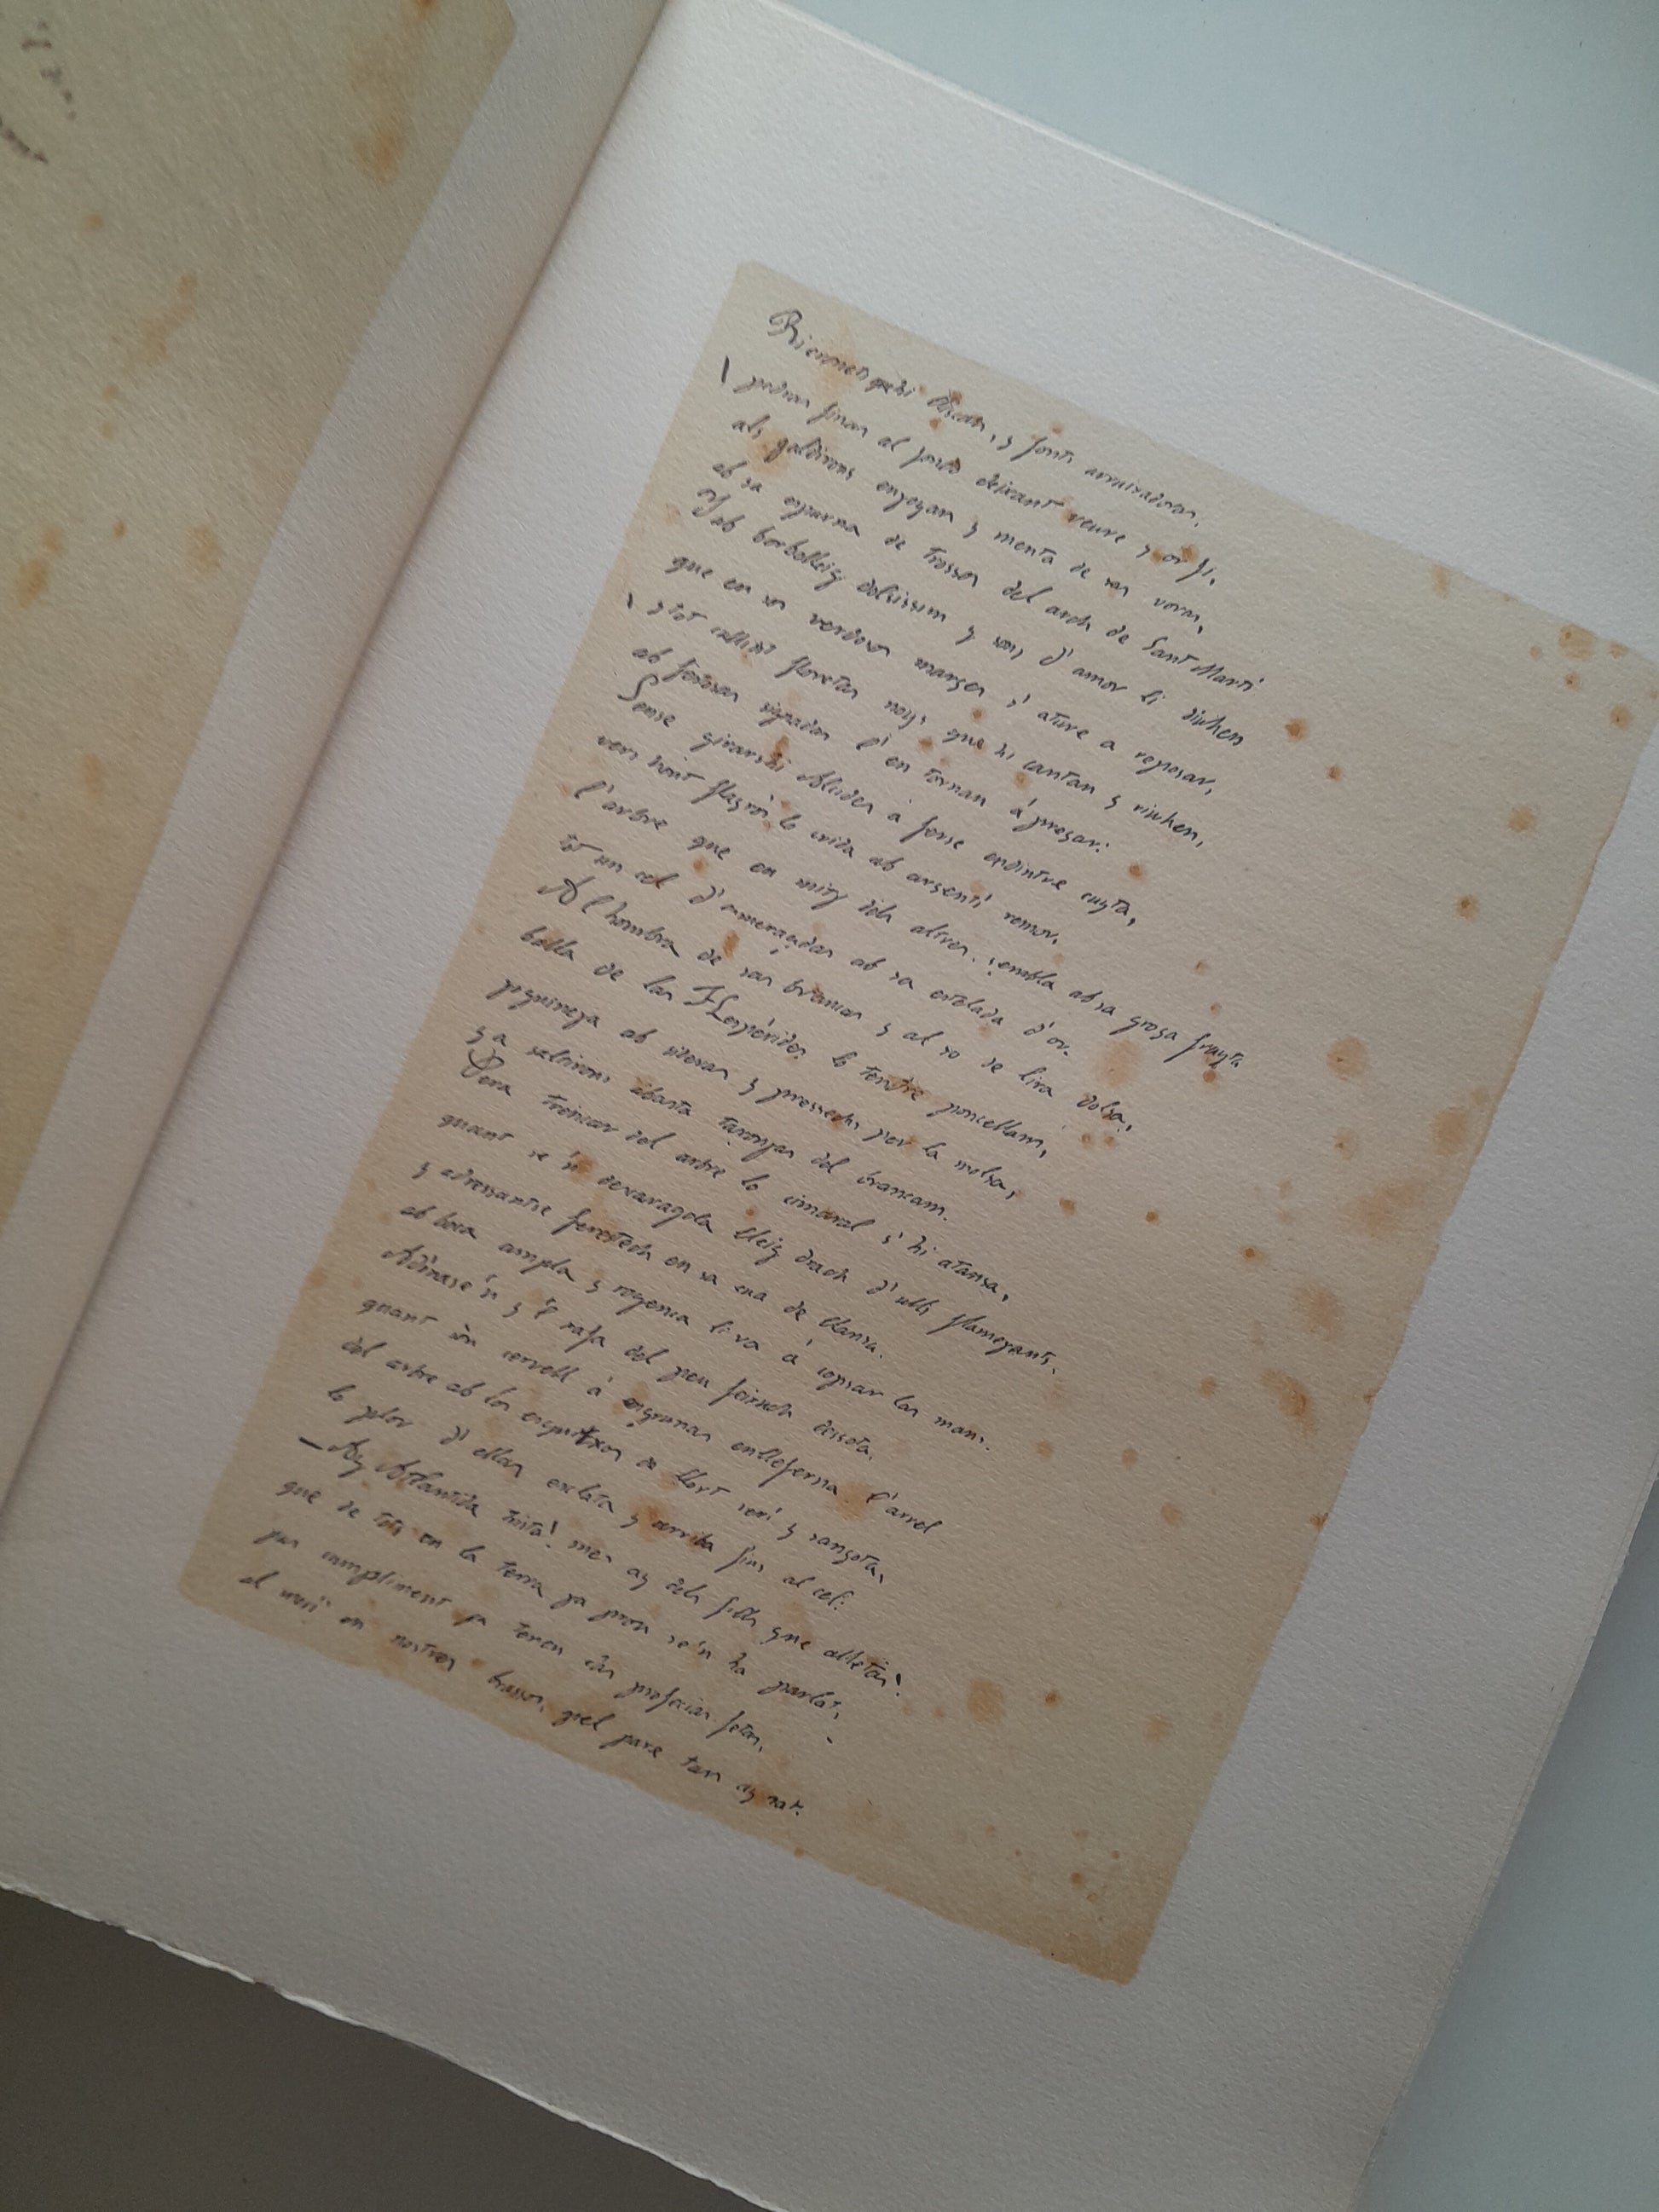 Rieronets qu'hi lliscan, y fonts arruixadoras,
pedras finas al fons deixant veure y or fi,
als galdirons engegan y menta de sas voras,
ab sa espurna de trossos del arch de Sant Martí
Y ab borbolleig dolcíssim y sons d'amor li diuhen
que en sos verdosos marges s'ature a reposar,
y tot cullint floretas noys que hi cantan y riuhen,
ab joyosas signadas l' en tornan á pregar:
Sense girarshi Alcides á forse endintre cuyta,
vers hont flayrós lo crida ab argentí remor,
l'arbre que en mitg dels altres, sembla ab sa grossa fruyta
tot un cel d'ameraqdas ab sa estelada d'or.
A l'hombra de sas brancas y al so de lira dolsa,
balla de las Hespérides lo tendre poncellam,
joguineja ab pilotas y pressechs per la molsa,
y a saltirons abasta taronjas del brancam.
Pera trencar del arbre lo cimaral s'hi atansa,
quant se 'n descaragola lleig drach d'ulls flamejants,
y adressantse feréstech en sa cua de llansa,
ab boca ampla y rogenca li va á copsar las mans.
Adonase'n y 'l rafa del peu feixuch desota,
quant son cervell á engrunas enllefersa l'arrel
del arbre ab los esquitxos de llort verí y sangota,
lo plor d' ellas esclata y arriba fins al cel:
—Ay Atlantida trista! mes ay dels fills que alletas!
que de tots en la terra ja prou se'n ha parlat,
jas cumpliment ja tenen las profecias fetas,
al morí en nostres brassos, pel pare tan aymat.